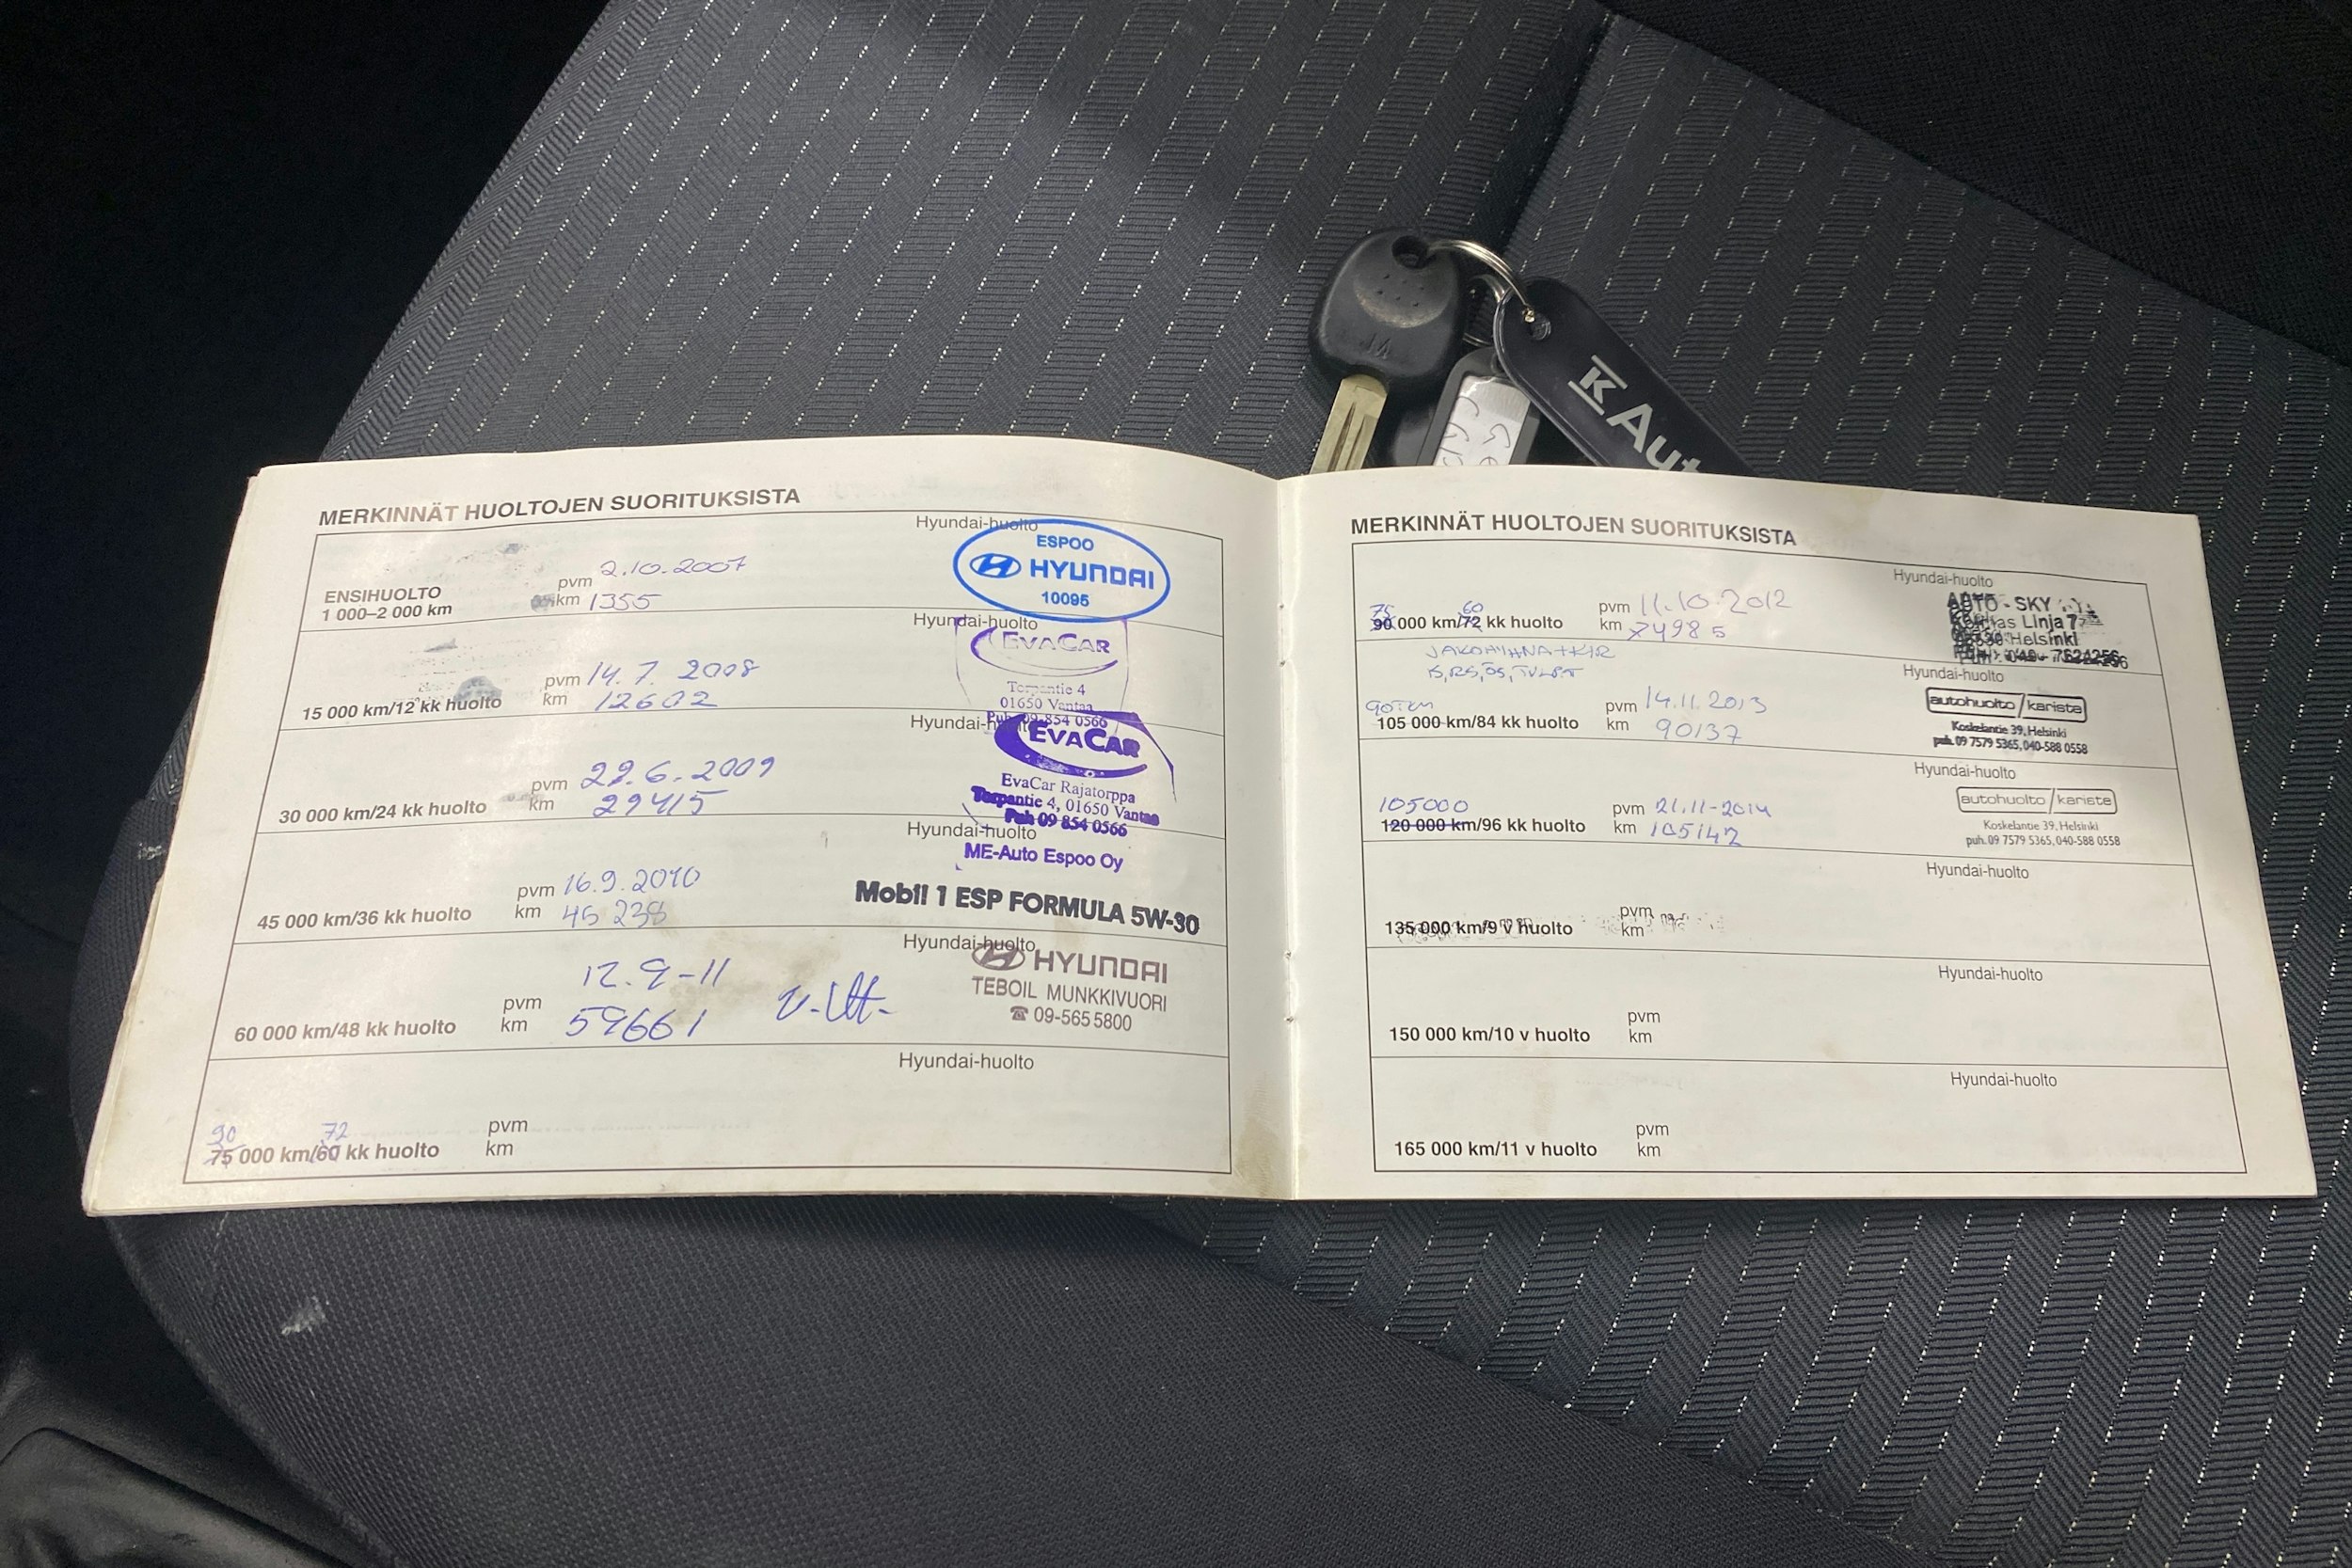 K Aut
MERKINNÄT HUOLTOJEN SUORITUKSISTA
Hyundai-huolto
ESPOO
HYUNDAI
10095
ENSIHUOLTO
1 000–2 000 km
pvm 2.10.2007
km 1355
Hyundai-huolto
EVACAR
Torpantie 4
01650 Vantaa
Puh 09 854 0566
15 000 km/12 kk huolto
pvm 14.7.2008
km 12602
Hyundai-huolto
EVACAR
EvaCar Rajatorppa
Torpantie 4, 01650 Vantaa
Puh 09 854 0566
30 000 km/24 kk huolto
pvm 22.6.2009
km 29415
Hyundai-huolto
ME-Auto Espoo Oy
Mobil 1 ESP FORMULA 5W-30
45 000 km/36 kk huolto
pvm 16.9.2010
km 45 238
Hyundai-huolto
HYUNDAI
TEBOIL MUNKKIVUORI
☎ 09-565 5800
60 000 km/48 kk huolto
pvm 12.9-11
km 59661
Hyundai-huolto
90 72
75 000 km/60 kk huolto
pvm
km
MERKINNÄT HUOLTOJEN SUORITUKSISTA
Hyundai-huolto
AUTO-SKY
Linja 7
Helsinki
75 60
90 000 km/72 kk huolto
pvm 11.10.2012
km 74985
JAKOHIHNA+KIR
Hyundai-huolto
autohuolto/kariste
Koskelantie 39, Helsinki
puh. 09 7579 5365, 040-588 0558
90tkm
105 000 km/84 kk huolto
pvm 14.11.2013
km 90137
Hyundai-huolto
autohuolto/kariste
Koskelantie 39, Helsinki
puh. 09 7579 5365, 040-588 0558
105000
120 000 km/96 kk huolto
pvm 21.11-2014
km 105142
Hyundai-huolto
135 000 km/9 v huolto
pvm
km
Hyundai-huolto
150 000 km/10 v huolto
pvm
km
Hyundai-huolto
165 000 km/11 v huolto
pvm
km